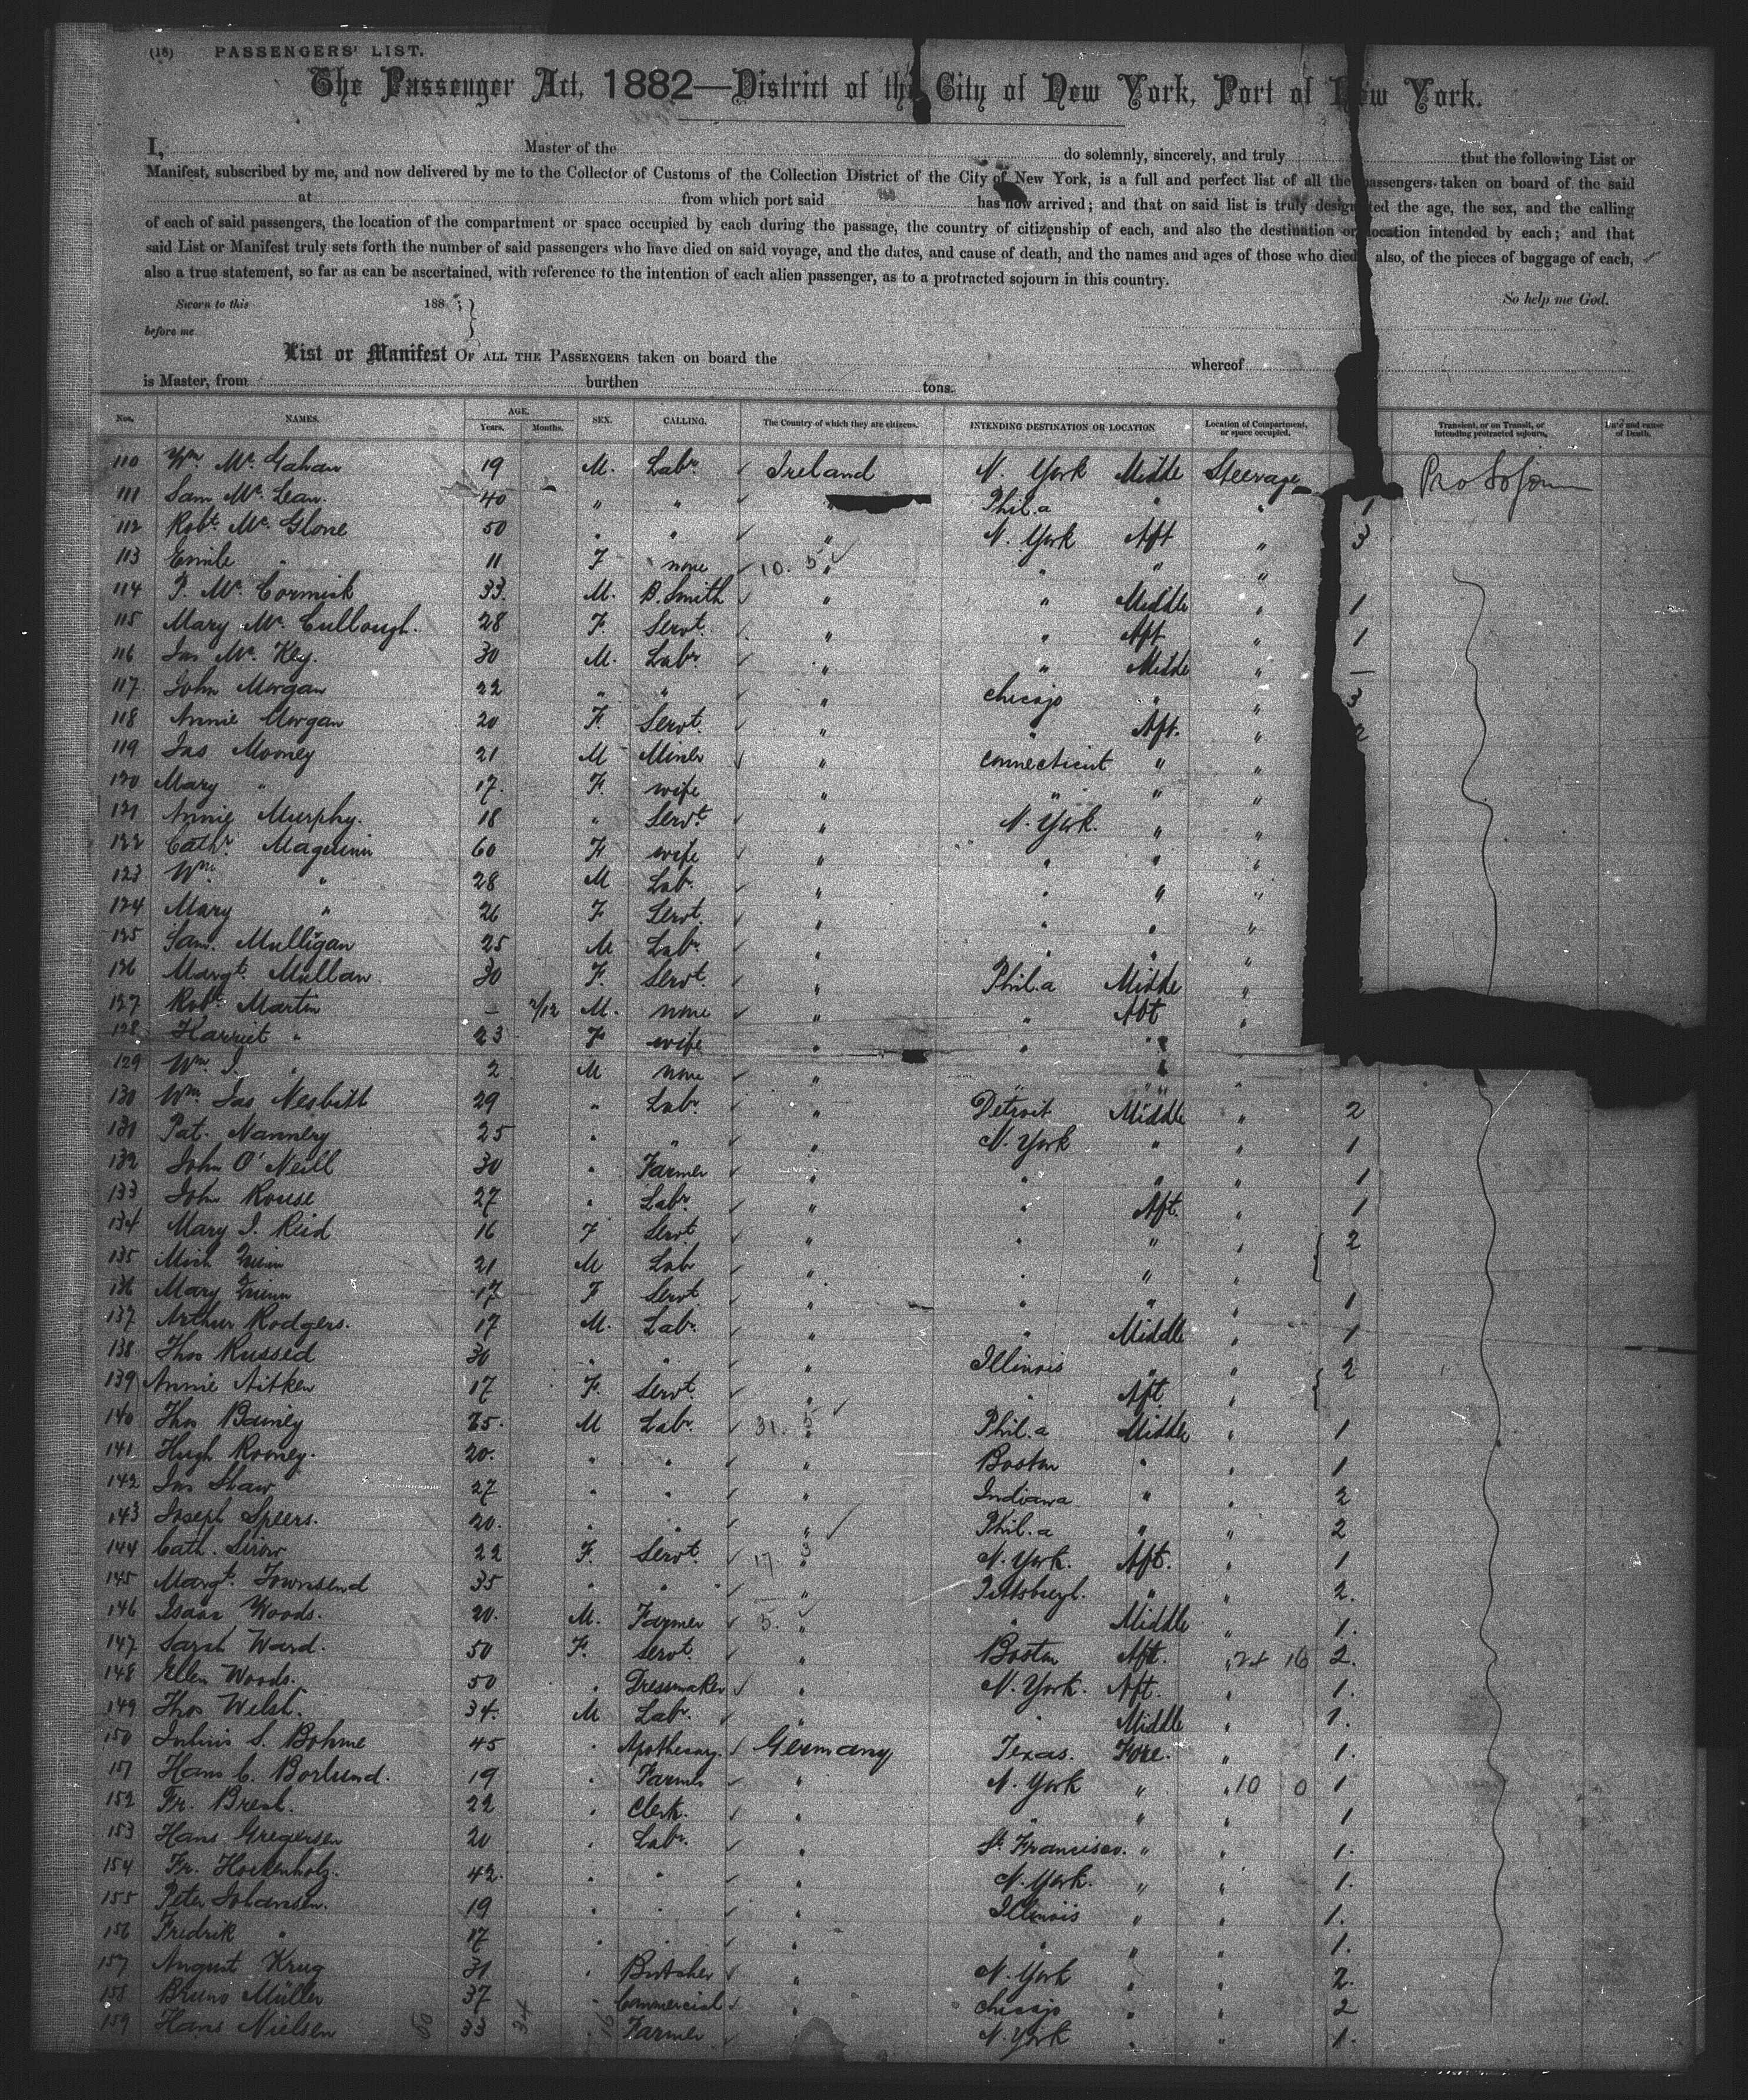 (18) PASSENGERS' LIST.
The Passenger Act, 1882—District of the City of New York, Port of New York.
I, Master of the do solemnly, sincerely, and truly that the following List or
Manifest, subscribed by me, and now delivered by me to the Collector of Customs of the Collection District of the City of New York, is a full and perfect list of all the passengers taken on board of the said
at from which port said has now arrived; and that on said list is truly designated the age, the sex, and the calling
of each of said passengers, the location of the compartment or space occupied by each during the passage, the country of citizenship of each, and also the destination or location intended by each; and that
said List or Manifest truly sets forth the number of said passengers who have died on said voyage, and the dates, and cause of death, and the names and ages of those who died also, of the pieces of baggage of each,
also a true statement, so far as can be ascertained, with reference to the intention of each alien passenger, as to a protracted sojourn in this country.
Sworn to this 188 So help me God.
before me
List or Manifest OF ALL THE PASSENGERS taken on board the whereof
is Master, from burthen tons.
Nos. NAMES. AGE. Years. Months. SEX. CALLING. The Country of which they are citizens. INTENDING DESTINATION OR LOCATION Location of Compartment, or space occupied. Transient, or on Transit, or intending protracted sojourn. Date and cause of Death.
110 Wm. Mc. Gahan 19 M. Labr. Ireland N. York Middle Steerage Pro Sojourn
111 Sam Mc. Lean. 40 " " " Phil.a " " 1
112 Robt. Mc. Glone 50 " " " N. York Aft " 3
113 Emile " 11 F none 10. 5 " " " "
114 P. Mc. Cormick 33. M. B. Smith " " Middle " 1
115 Mary Mc. Cullough. 28 F. Servt. " " Aft " 1
116 Jas Mc. Key. 30 M. Labr. " " Middle " —
117 John Morgan 22 " " " Chicago " " 3
118 Annie Morgan 20 F. Servt. " " Aft. " 2
119 Jas Mooney 21 M Miner " Connecticut " "
120 Mary " 17. F. wife " " " "
121 Annie Murphy. 18 " Servt. " N. York. " "
122 Cathr. Maguinn 60 F wife " " " "
123 Wm. " 28 M Labr. " " " "
124 Mary " 26 F Servt. " " " "
125 Sam. Mulligan 25 M Labr. " " " "
126 Margt. Mullan. 30 F. Servt. " Phil.a Middle "
127 Robt. Martin — 2/12 M. none " " Aft "
128 Harriet " 23 F wife " " "
129 Wm. J. " 2 M none " " "
130 Wm. Jas Nesbitt 29 " Labr. " Detroit Middle " 2
131 Pat. Nannery 25 " " " N. York " " 1
132 John O'Neill 30 " Farmer " " " " 1
133 John Rouse 27 " Labr. " " Aft. " 1
134 Mary J. Reid 16 F Servt " " " " 2
135 Mich Quinn 21 M Lab " " " "
136 Mary Quinn 17 F Servt. " " " " 1
137 Arthur Rodgers. 17 M. Labr. " " Middle " 1
138 Thos Russed 30 " " " Illinois " " 2
139 Annie Aitken 17 F. Servt. " " Aft. "
140 Thos Bainey 25. M Labr. 31. 5 " Phil.a Middle " 1
141 Hugh Rooney. 20. " " " Boston " " 1
142 Jas Shaw 27 " " " Indiana " " 2
143 Joseph Speers. 20. " " " Phil.a " " 2
144 Cath. 22 F. Servt. 17. 3 " N. York. Aft. " 1
145 Margt. Townsend 35 " " " Pittsburgh. " " 2.
146 Isaac Woods. 20. M. Farmer 5. " " Middle " 1.
147 Sarah Ward. 50 F. Servt. " Boston Aft. " 24 16 2.
148 Ellen Woods. 50 " Dressmaker " N. York. Aft. " 1.
149 Thos Welsh. 34. M Labr. " " Middle " 1.
150 Julius S. Bohme 45 " Apothecary. Germany Texas. Fore. " 1.
151 Hans C. Borlund. 19 " Farmer " N. York " " 10 0 1
152 Fr. Bresl. 22 " Clerk. " " " " 1
153 Hans Gregersen 20 " Labr. " St. Francisco. " " 1.
154 Fr. Hockenholz. 42. " " " N. York. " " 1.
155 Peter Johansen. 19 " " " Illinois " " 1.
156 Fredrik " 17 " " " " " " 1.
157 August Krug 31 " Butcher " N. York " " 2.
158 Bruno Müller 37 " Commercial " Chicago " " 2
159 Hans Nielsen 60 33 34 " 16 Farmer " N. York " " 1.